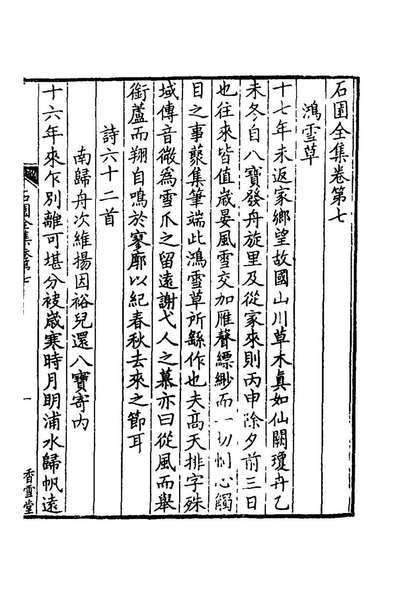 石園全集卷第七
鴻雪草
十七年未返家鄉望故國山川草木真如仙闕瓊舟乙
未冬自八寶發舟旋里及從家來則丙申除夕前三日
也往來皆值歲晏風雪交加雁聲縹緲而一切忉心觸
目之事蘡集筆端此鴻雪草所繇作也夫高天排字殊
域傳音微為雪爪之留遠謝弋人之慕亦曰從風而舉
銜蘆而翔自鳴於寥廓以紀春秋去來之節耳
詩六十二首
南歸舟次維揚因裕兒還八寶寄內
十六年來乍別離可堪分袂歲寒時月明浦水歸帆遠
石園全集卷第七
一
香雪堂